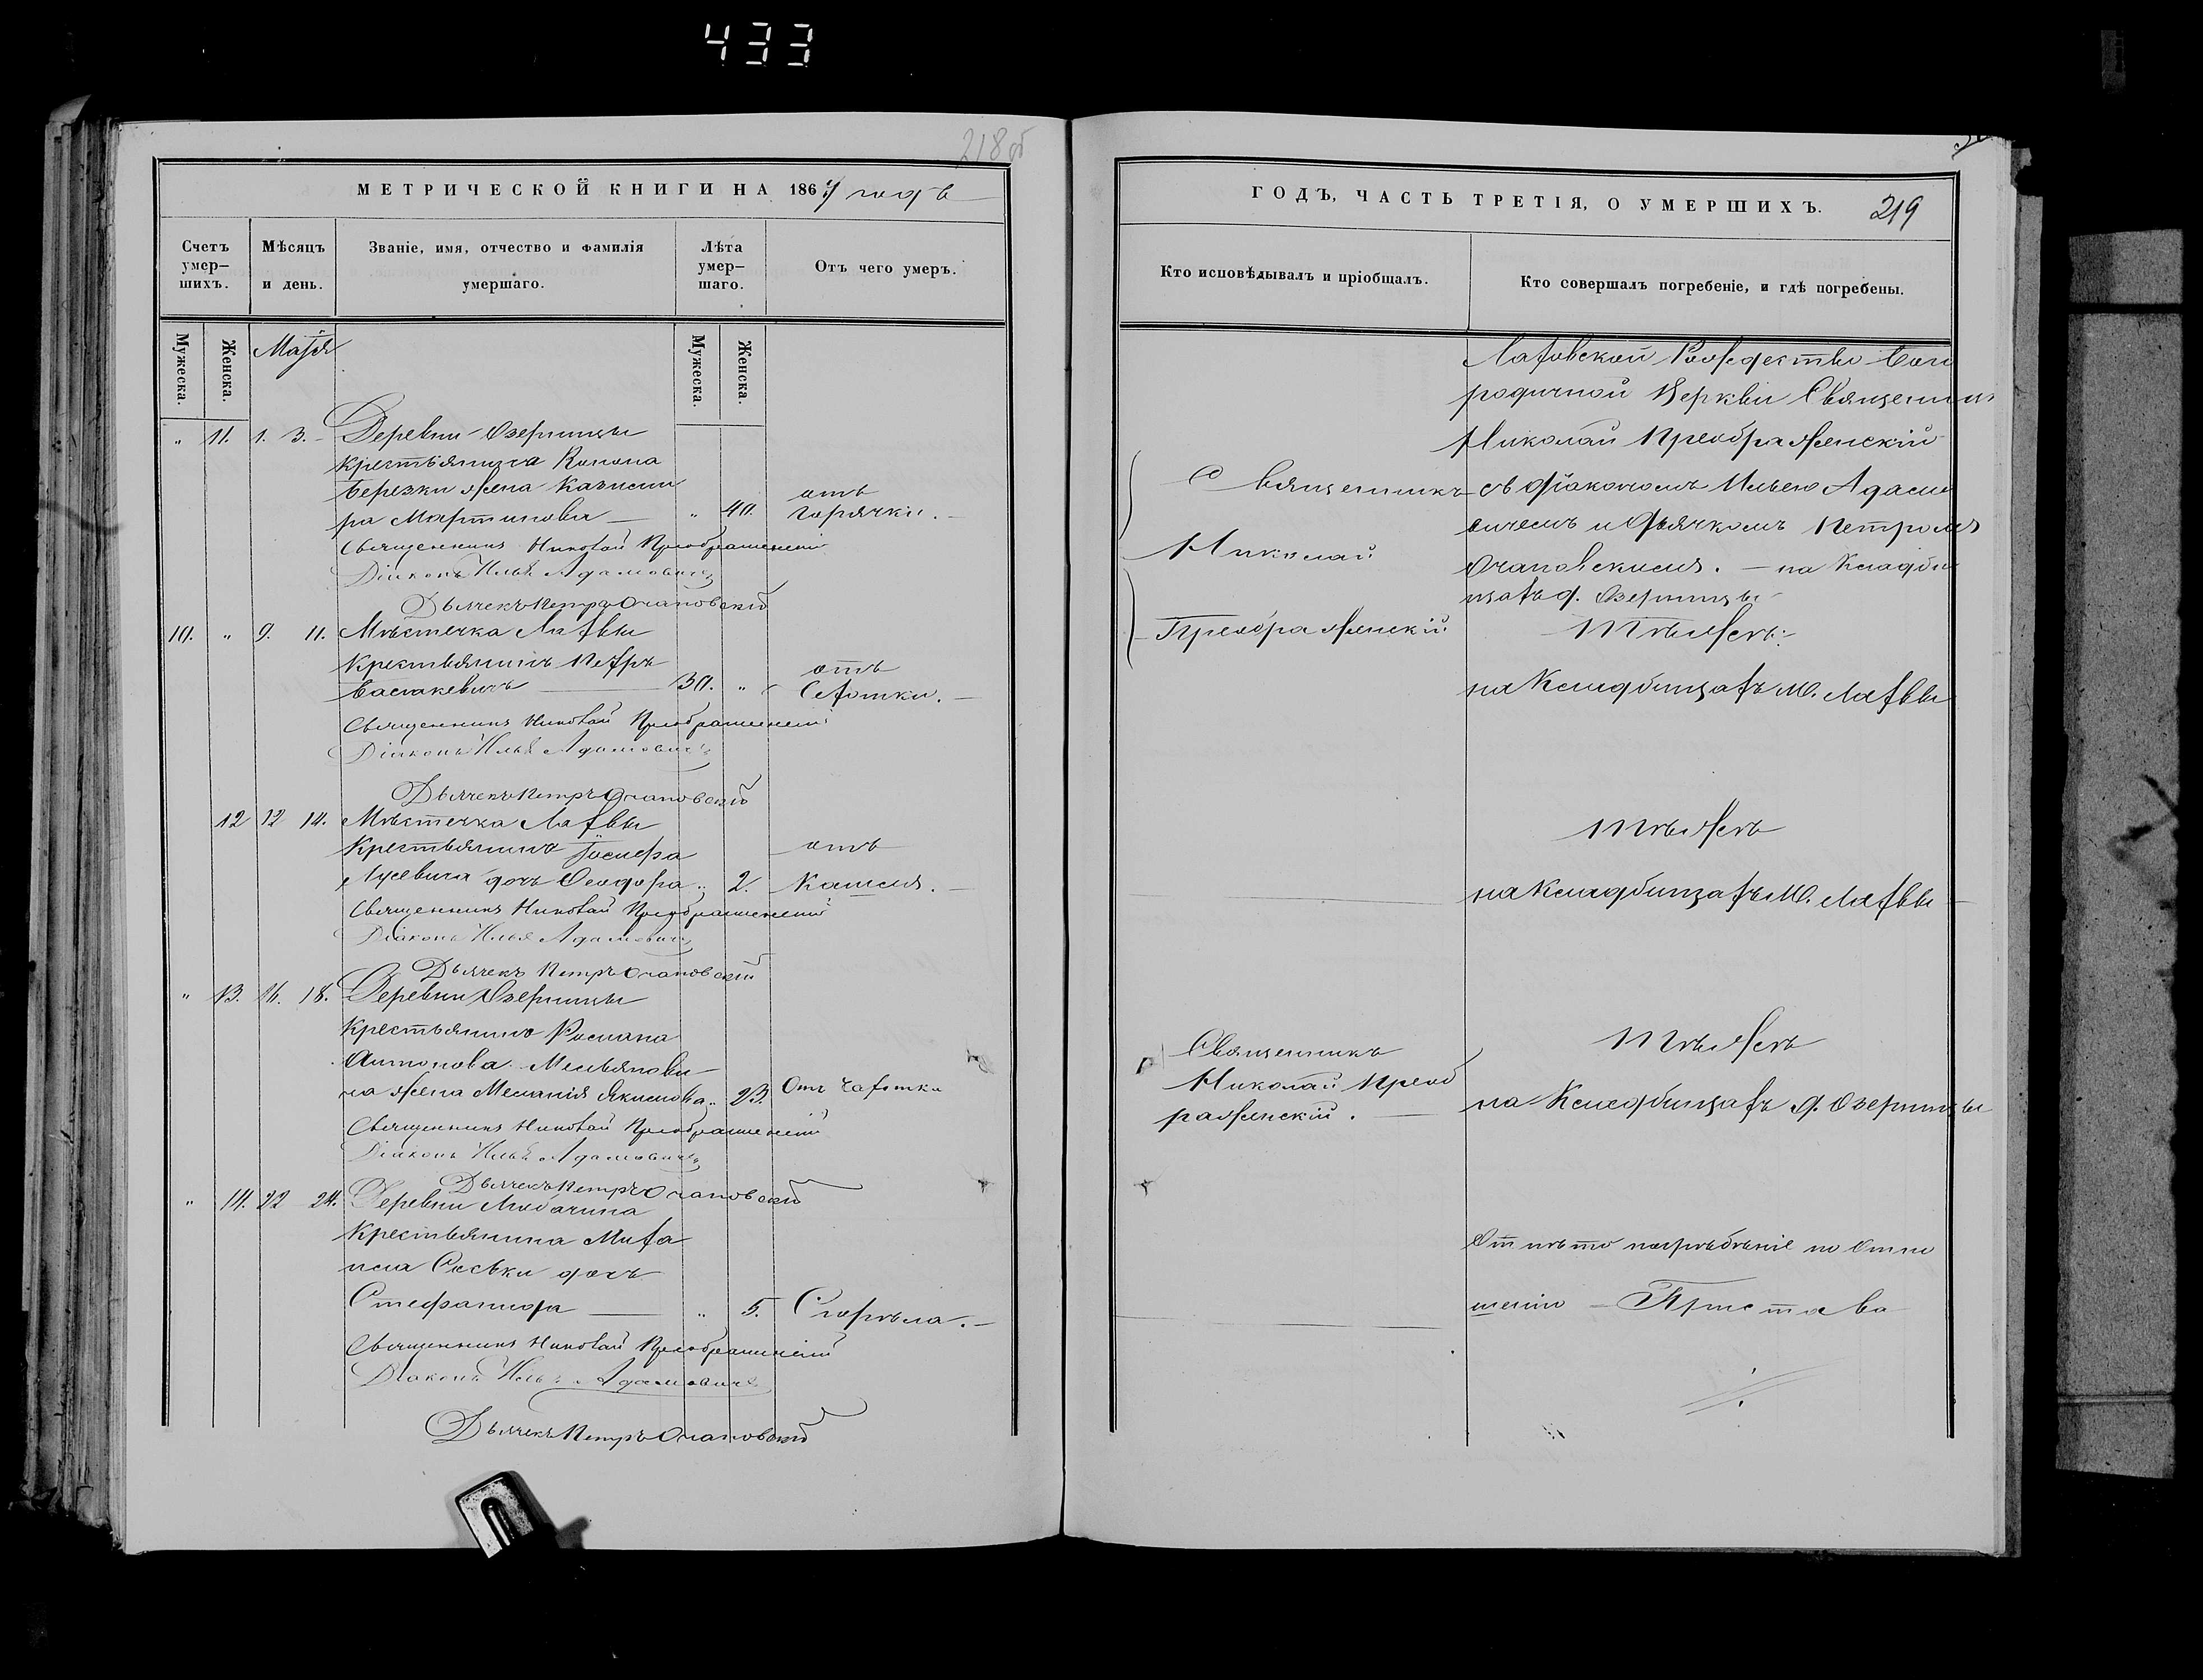 433
218 об
МЕТРИЧЕСКОЙ КНИГИ НА 1867 годъ
Счетъ умер-шихъ.
Мѣсяцъ и день.
Званіе, имя, отчество и фамилія умершаго.
Лѣта умер-шаго.
Отъ чего умеръ.
Мужеска.
Женска.
Маія
Мужеска.
Женска.
„ 11. 1. 3. Деревни Озерницы
Крестьянина Конона
Березки жена Казими
ра Мартинова — „ 40. отъ горячки.
Священникъ Николай Преображенскій
Діаконъ Илья Адамовичъ
Дьячекъ Петръ Очаповскій
10. „ 9. 11. Мѣстечка Лахвы
Крестьянинъ Петръ
30. „ отъ Сухотки.
Священникъ Николай Преображенскій
Діаконъ Илья Адамовичъ
Дьячекъ Петръ Очаповскій
12 12 14. Мѣстечка Лахвы
Крестьянина Іосифа
Лусевича дочь Ѳеодора „ 2. отъ Кашля.
Священникъ Николай Преображенскій
Діаконъ Илья Адамовичъ
Дьячекъ Петръ Очаповскій
„ 13. 16. 18. Деревни Озерницы
Крестьянина Романа
Антонова
на жена Меланія Якимова „ 23. Отъ чахотки
Священникъ Николай Преображенскій
Діаконъ Илья Адамовичъ
Дьячекъ Петръ Очаповскій
„ 14. 22 24. Деревни Любачина
Крестьянина Миха
ила дочь
Стефанида — „ 5. Сгорѣла.
Священникъ Николай Преображенскій
Діаконъ Илья Адамовичъ
Дьячекъ Петръ Очаповскій
ГОДЪ, ЧАСТЬ ТРЕТІЯ, О УМЕРШИХЪ.
219
Кто исповѣдывалъ и пріобщалъ.
Кто совершалъ погребеніе, и гдѣ погребены.
Лаховской Рождество Бого
родичной Церкви Священникъ
Николай Преображенскій
Священникъ съ діакономъ Ильею Адамо
вичемъ и Дьячкомъ Петромъ
Николай Очаповскимъ. — на Кладби
щахъ д. Озерницы
Преображенскій Тѣ же
на Кладбищахъ М. Лахвы
Тѣ же
на Кладбищахъ М. Лахвы
Священникъ Тѣ же
Николай Преоб
раженскій. на Кладбищахъ д. Озерницы
погрѣбѣніе по Отно
шенію Пристава